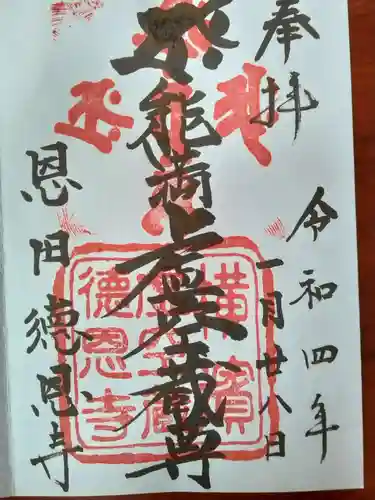 奉拝
令和四年
一月廿八日
能満
虚空蔵尊
恩田徳恩寺
横濱
虚空蔵
徳恩寺